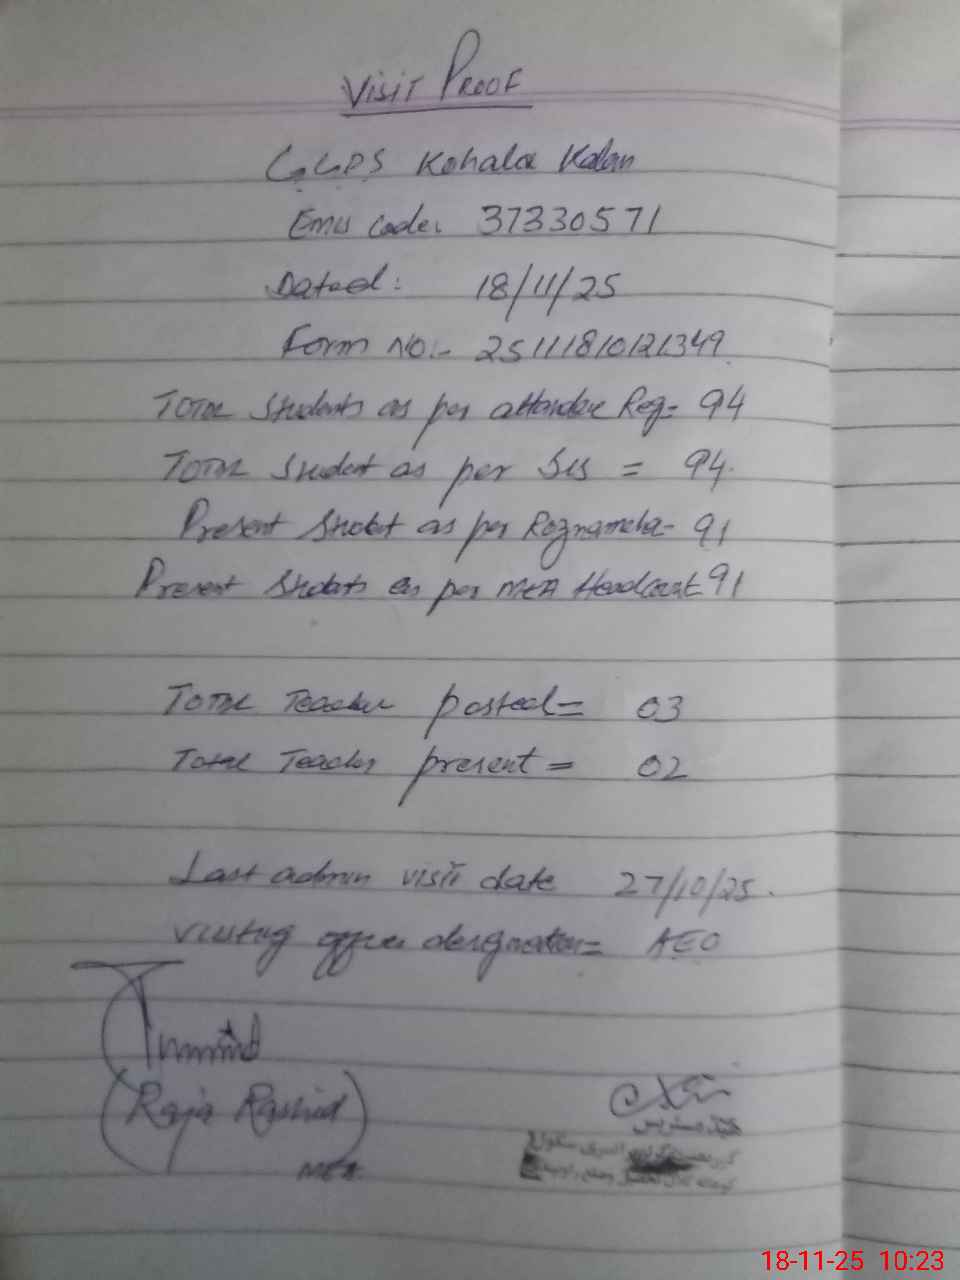 Visit Proof
GGPS Kohala Kalan
Emis Code: 37330571
Dated: 18/11/25
Form No:- 25111810121349
Total Students as per attendance Reg= 94
Total Student as per SIS = 94.
Present Student as per Roznamcha- 91
Present Students as per MEA Headcount 91
Total Teacher posted= 03
Total Teacher present = 02
Last admin visit date 27/10/25.
Visiting officer designation= AEO
(Raja Rashid)
MEA.
ہیڈ مسٹریس
سکول
18-11-25 10:23